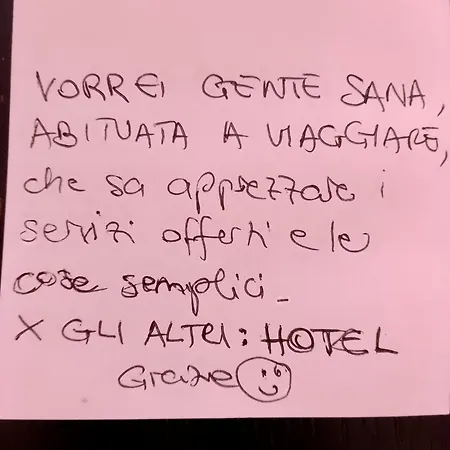 VORREI GENTE SANA,
ABITUATA A VIAGGIARE,
che sa apprezzare i
servizi offerti e le
cose semplici.
X GLI ALTRI: HOTEL
Grazie